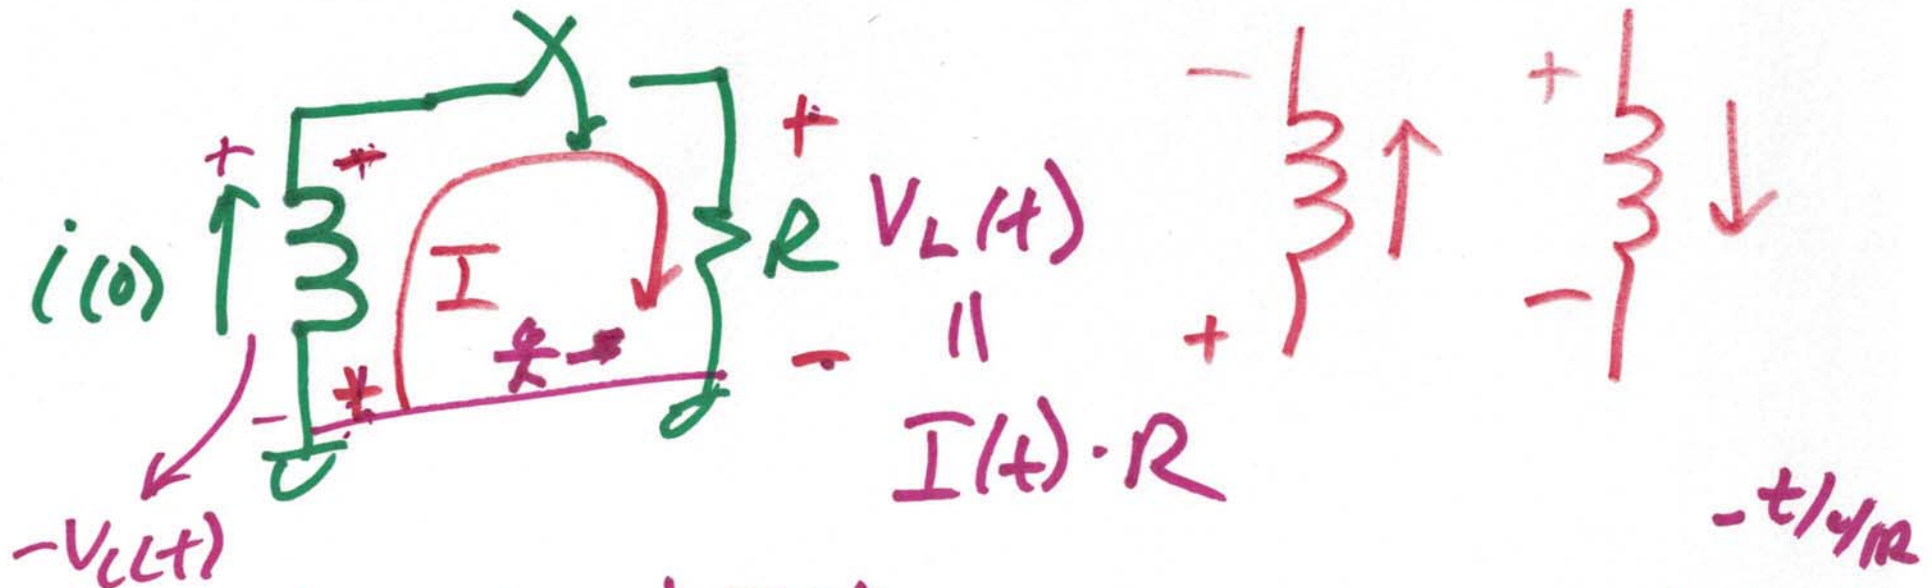 + +
- +
i(0) I R V_L(t)
+ -
= I(t)·R
-V_L(t)